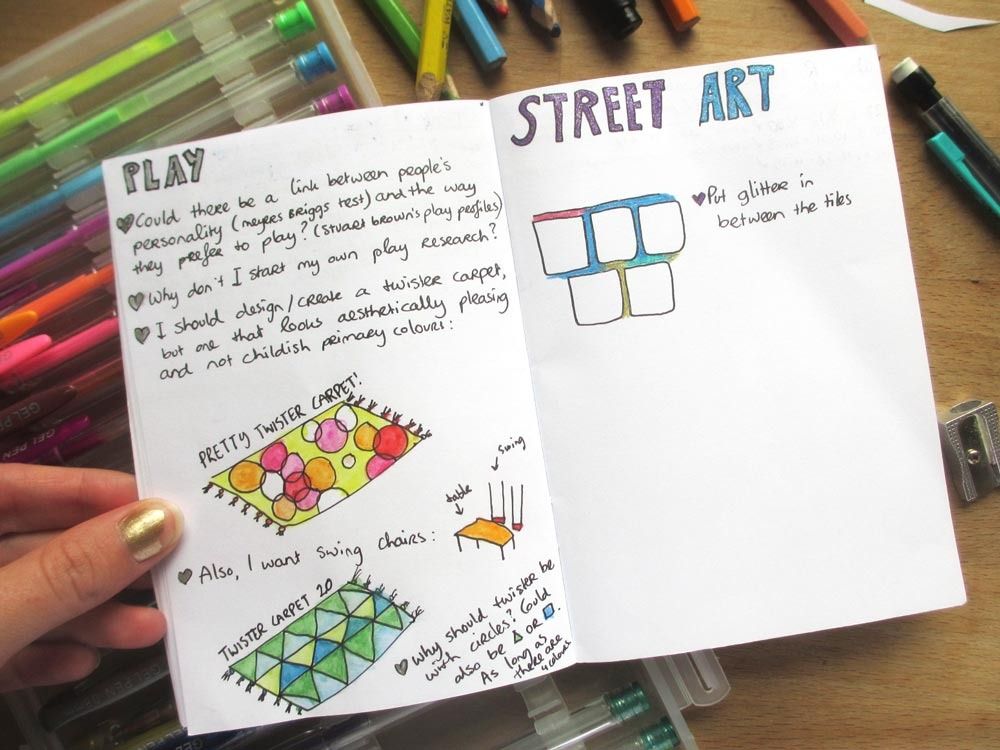 PLAY
Could there be a link between people's
personality (meyers Briggs test) and the way
they prefer to play? (Stuart Brown's play profiles)
Why don't I start my own play research?
I should design/create a twister carpet,
but one that looks aesthetically pleasing
and not childish primary colours:
PRETTY TWISTER CARPET!
swing
table
Also, I want swing chairs:
TWISTER CARPET 2.0
Why should twister be
with circles? Could
also be Δ OR □.
As long as
there are
4 colours
STREET ART
Put glitter in
between the tiles
GEL PEN
GEL PEN